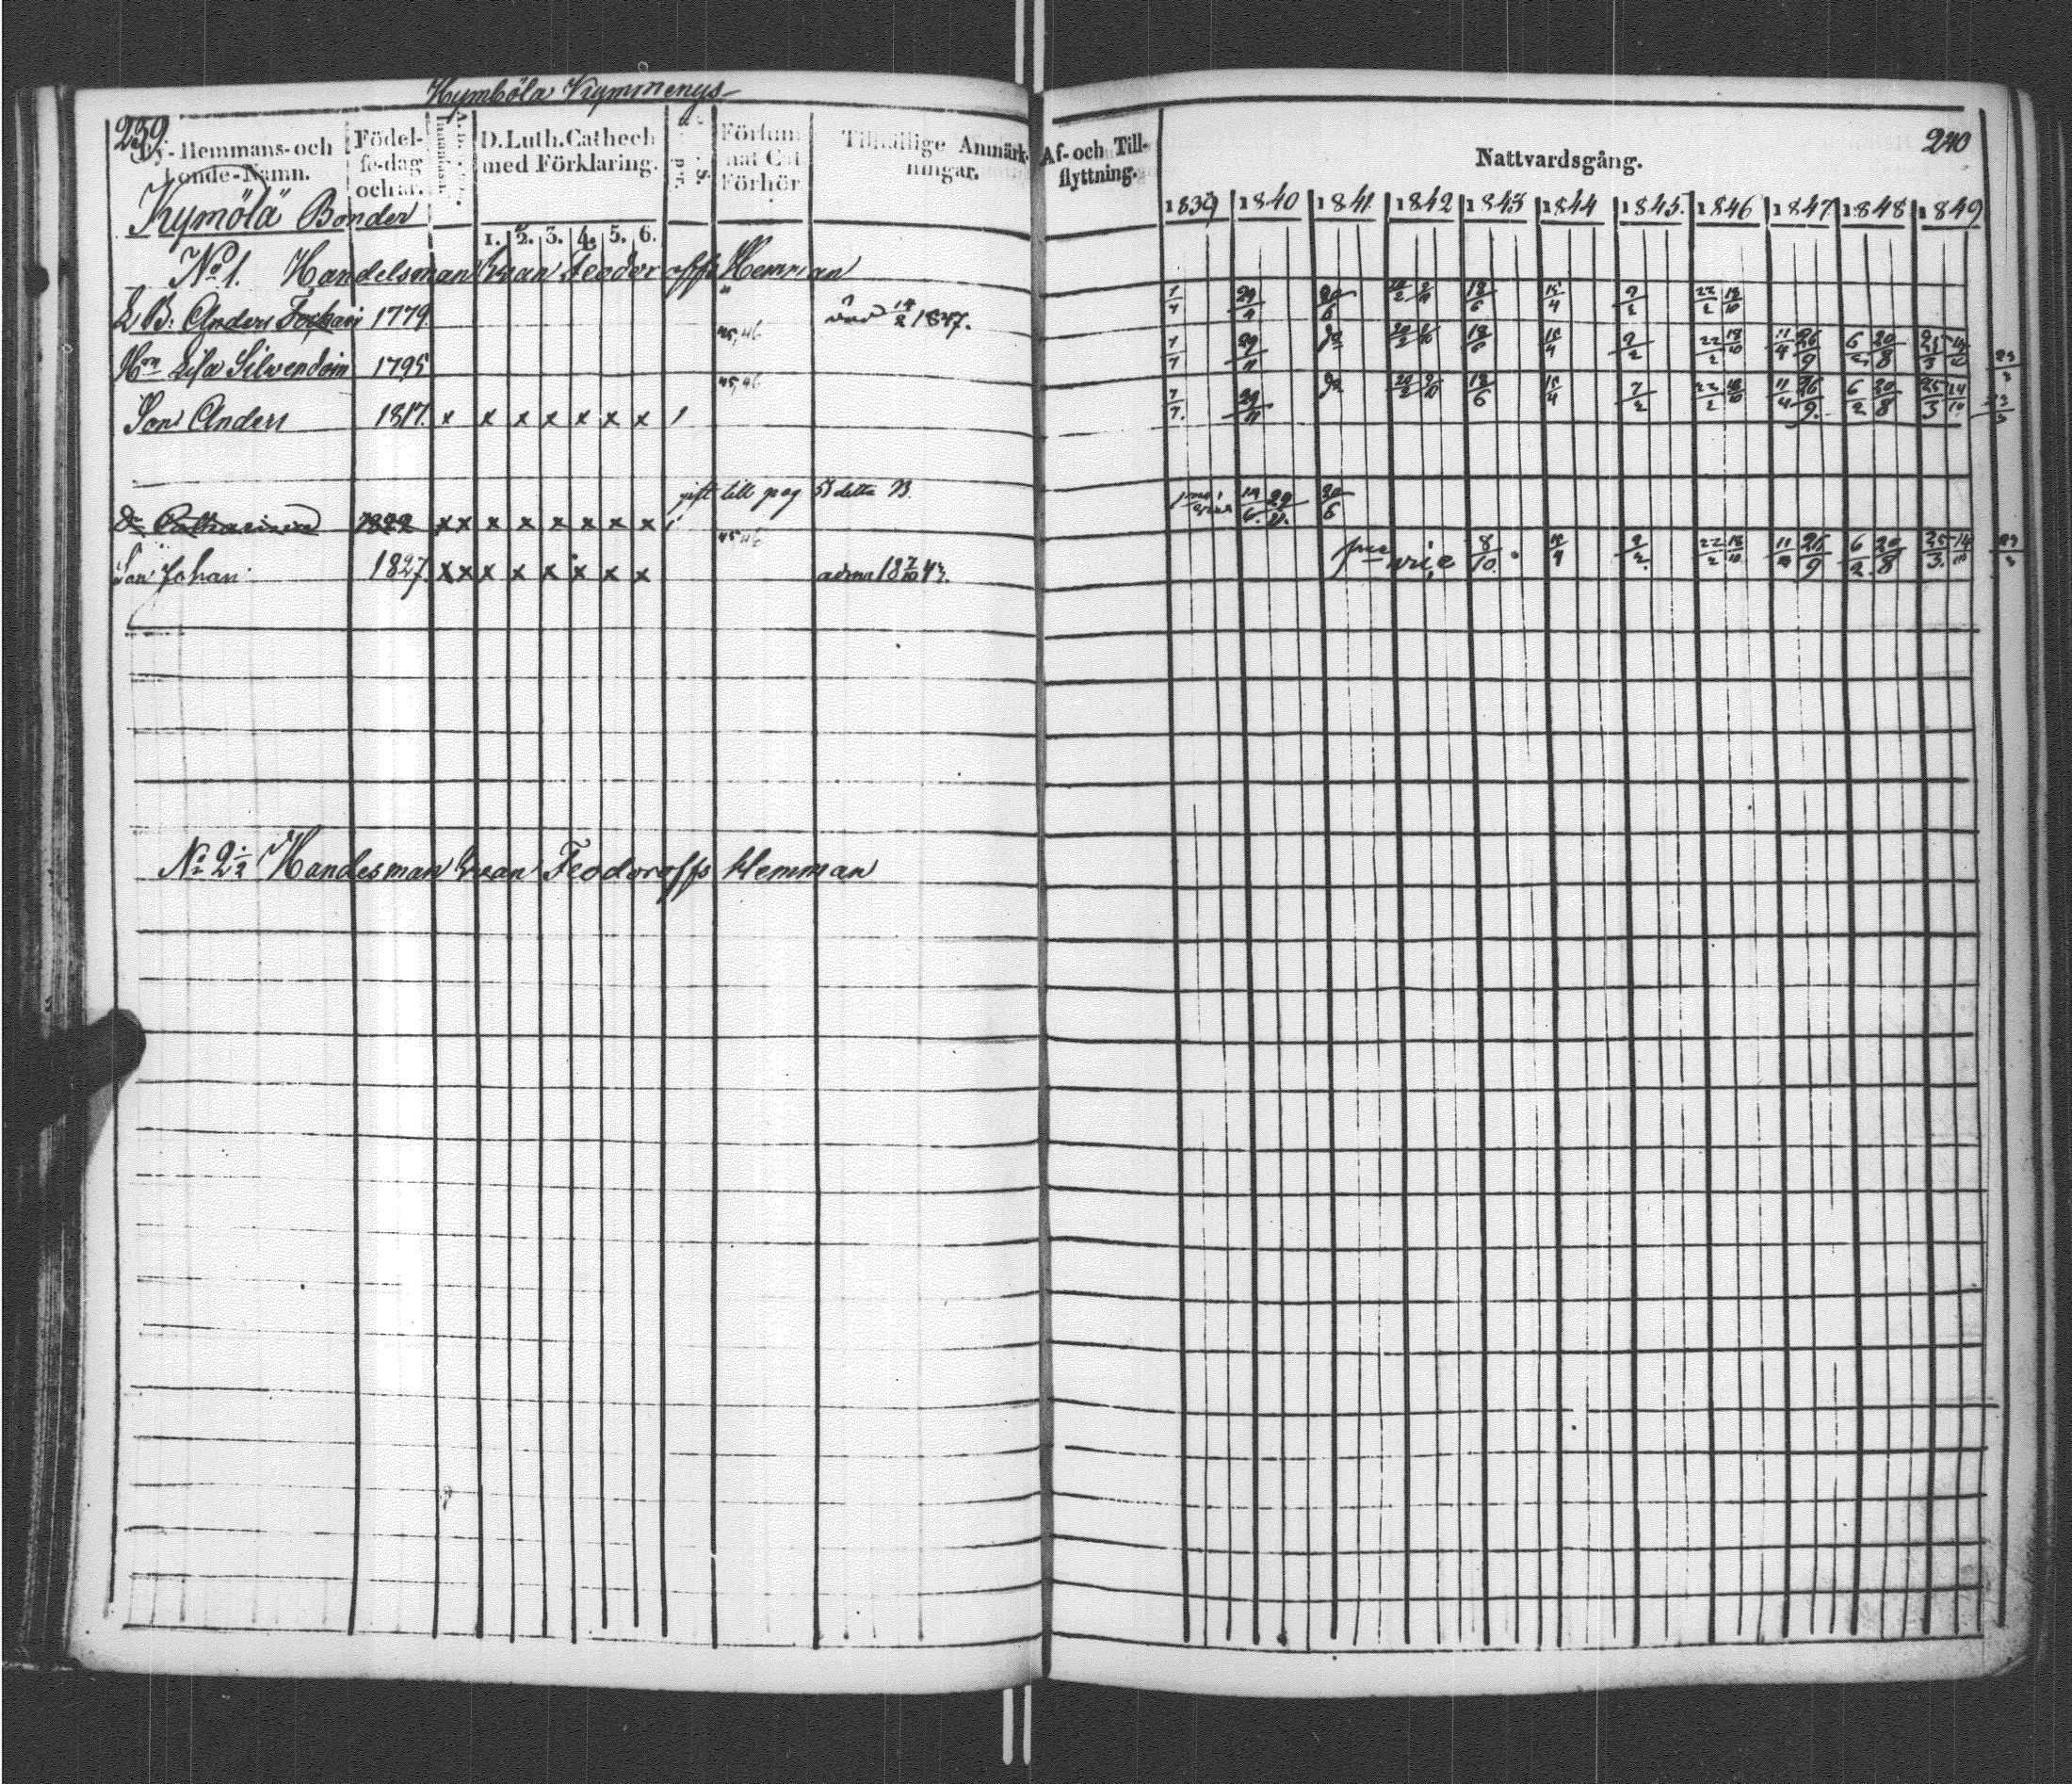 Kymböla Kymmenys
239
By-Hemmans-och Bonde-Namn.
Födel-se-dag och år.
D. Luth. Cathech med Förklaring.
1. 2. 3. 4. 5. 6.
Försum nat Cat Förhör
Tillfällige Anmärk-ningar.
Kymölä Bönder
No 1. Handelsman Ivan Feodoroffs Hemman
Anders 1779. 14/2 1847.
Hn Lisa Silvendoin 1795 45,46
Son Anders 1817. x x x x x x x 45,46
gift till pag 51 detta B.
Dr Catharina 1822 x x x x x x x x
Son Johan 1827. x x x x x x x x 45,46
No 2 1/2 Handesman Ivan Feodoroffs Hemman
240
Af- och Till-flyttning.
Nattvardsgång.
1839 1840 1841 1842 1843 1844 1845. 1846 1847 1848 1849
7/7 29/11 20/6 18/6 15/4 9/2 22/2 18/10
7/7 29/11 18/6 15/4 9/2 22/2 18/10 11/4 26/9 6/2 20/8 25/3 14/10
7/7. 29/11 18/6 15/4 22/2 18/10 11/4 26/9. 6/2 20/8 25/3 14/10
20/6
8/10. 15/4 9/2. 22/2 18/10 11/4 26/9 6/2 20/8 25/3. 14/10